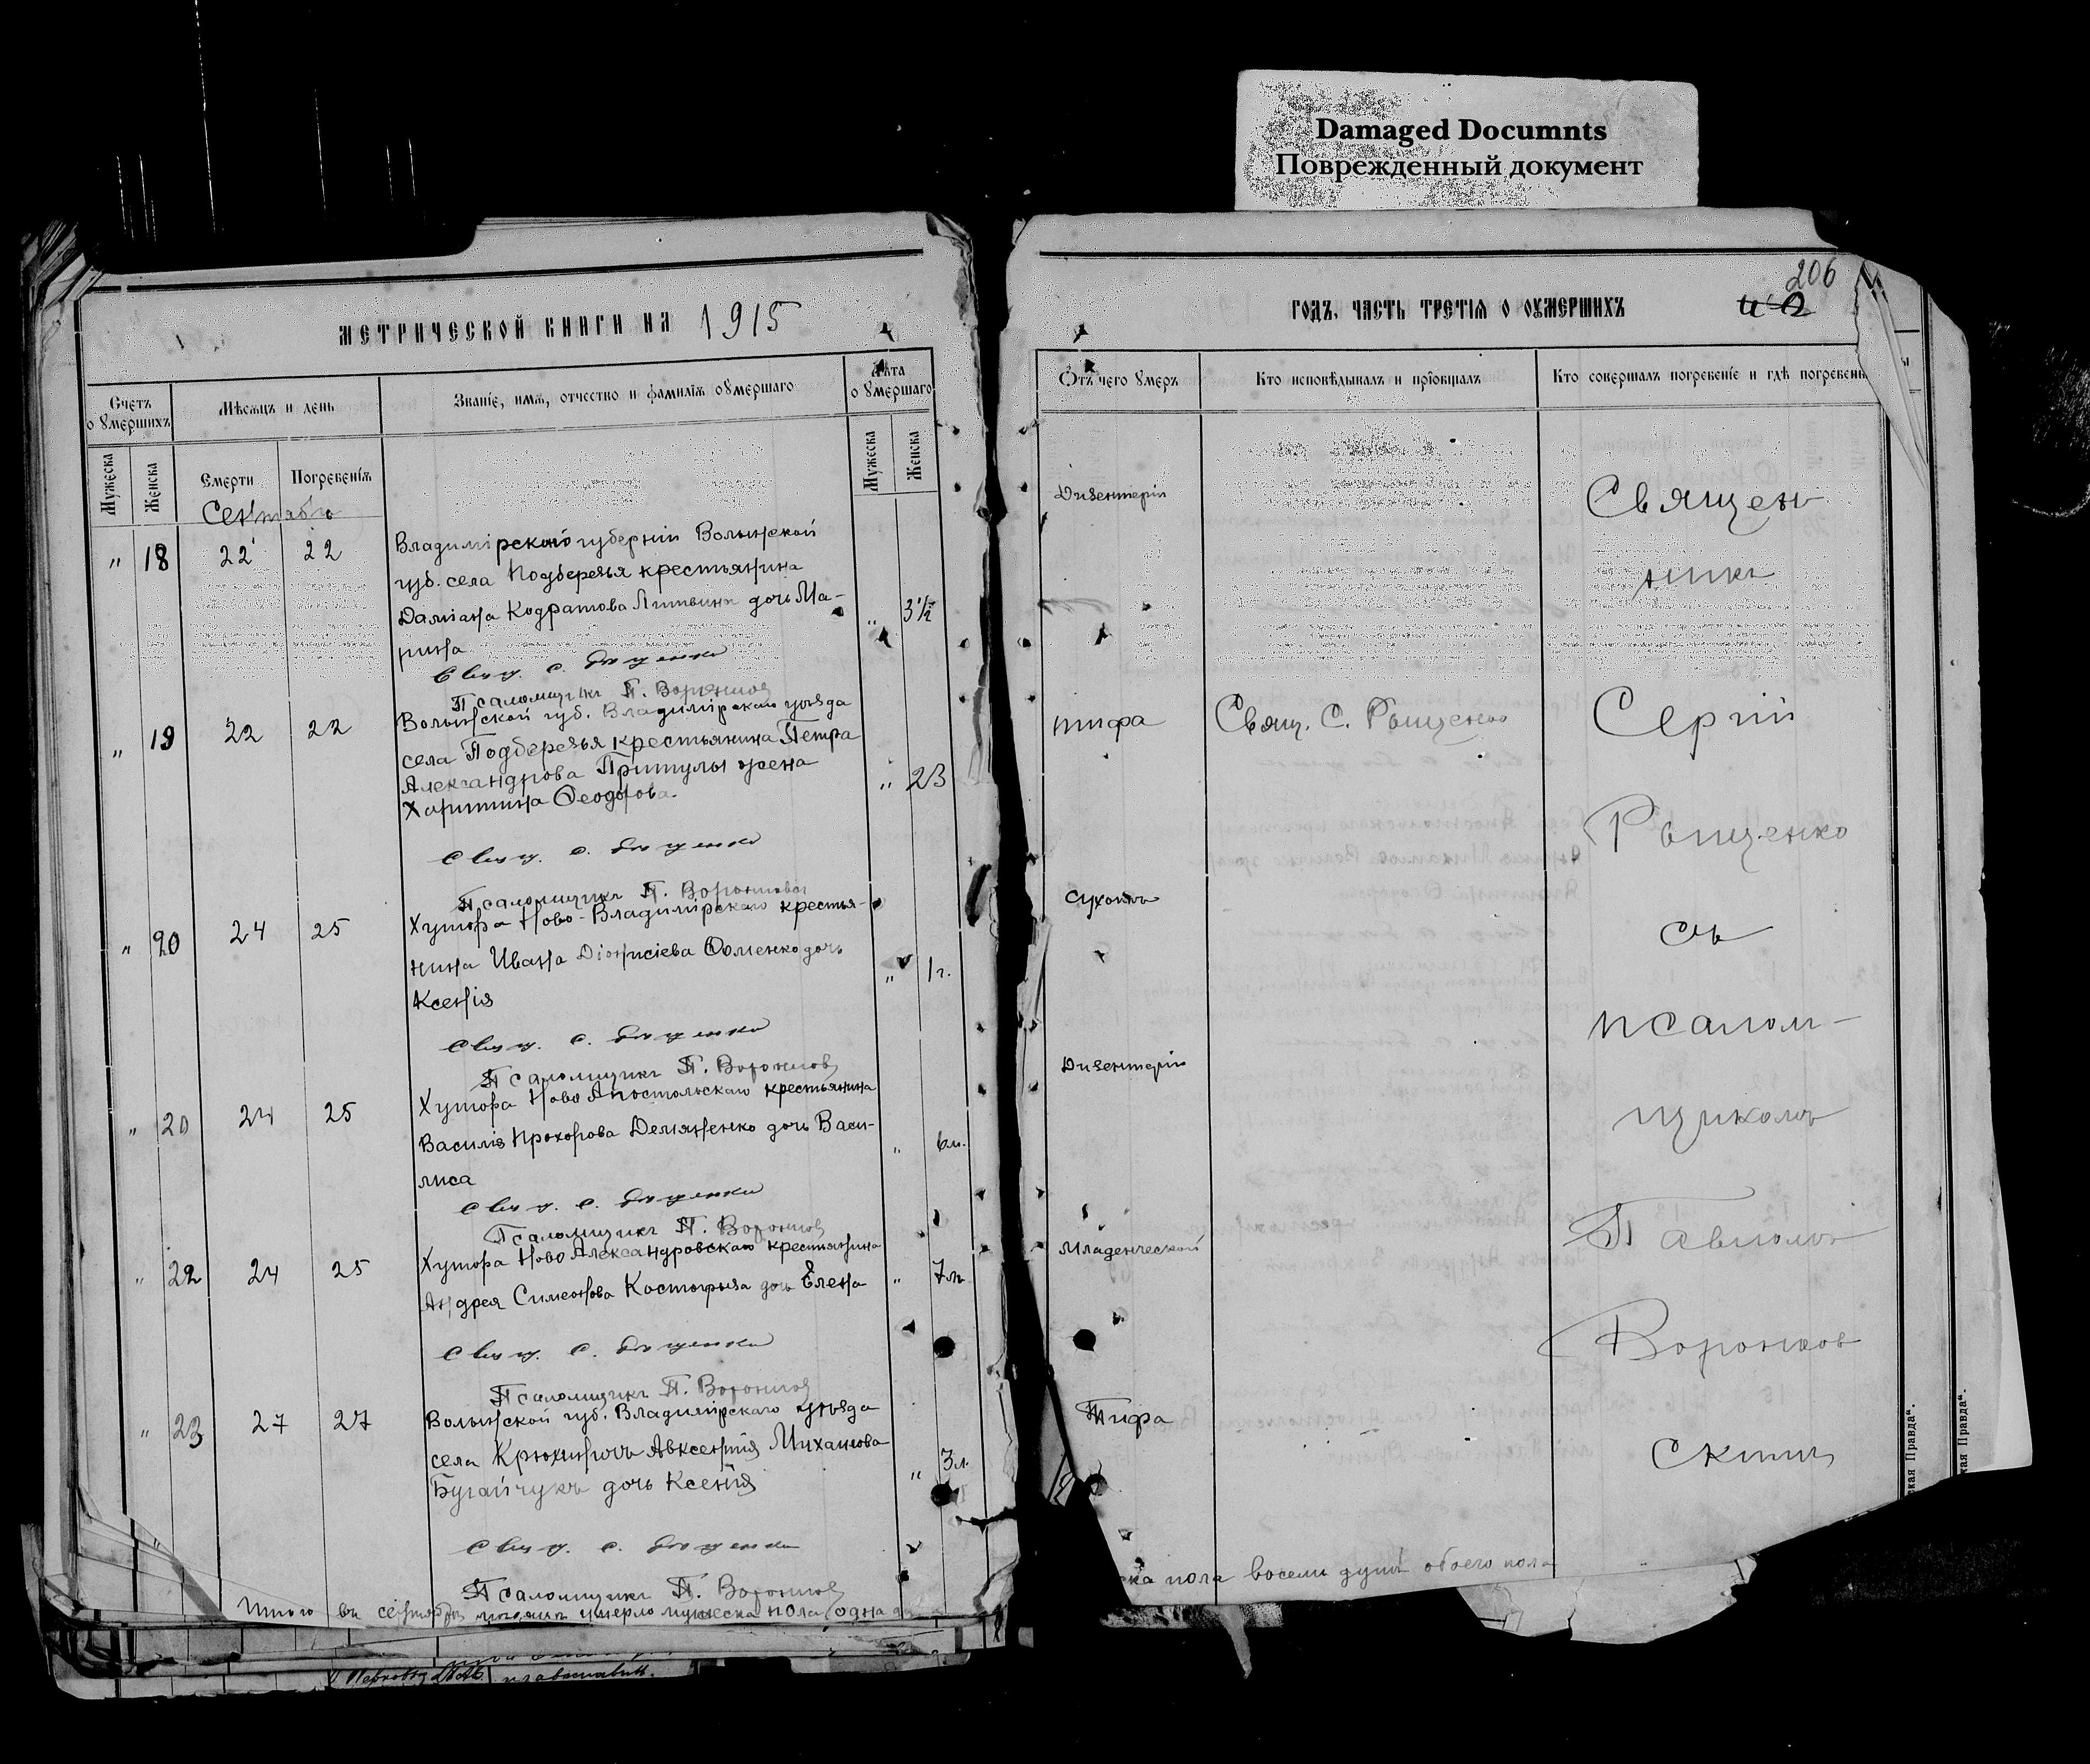 Damaged Documnts
Поврежденный документ
МЕТРИЧЕСКОЙ КНИГИ НА 1915
Счетъ оумершихъ
Мѣсяцъ и день
Званіе, имя, отчество и фамилія оумершаго
Лѣта оумершаго
Мужеска
Женска
Смерти
Погребенія
Мужеска
Женска
Сентябрь
" 18 22 22 Владимірской губерніи Волынской
губ. села Подберезья крестьянина
Даміана Кодратова Литвина дочь Ма-
рина " 3½
Свящ. С. Рощенко
Псаломщикъ П. Воронцов
" 19 22 22 Волынской губ. Владимірскаго уѣзда
села Подберезья крестьянина Петра
Александрова Притулы жена
Харитина Ѳеодорова. " 23
Свящ. С. Рощенко
Псаломщикъ П. Воронцов
" 20 24 25 Хутора Ново-Владимірскаго крестья-
нина Ивана Діонисіева Ѳоменко дочь
Ксенія " 1 г.
Свящ. С. Рощенко
Псаломщикъ П. Воронцов
" 20 24 25 Хутора Ново Апостольскаго крестьянина
Василія Прохорова Демяненко дочь Васи-
лиса " 6м.
Свящ. С. Рощенко
Псаломщикъ П. Воронцов
" 22 24 25 Хутора Ново Александровскаго крестьянина
Андрея Симеонова Костогрыза дочь Елена " 7м
Свящ. С. Рощенко
Псаломщикъ П. Воронцов
" 23 27 27 Волынской губ. Владимірскаго уѣзда
села Авксентія Михайлова
Бугайчукъ дочь Ксенія " 3 л.
Свящ. С. Рощенко
Псаломщикъ П. Воронцов
Итого въ сентябрѣ умерло мужеска пола одна
206
ГОДЪ, ЧАСТЬ ТРЕТІЯ О ОУМЕРШИХЪ
Отъ чего оумеръ
Кто исповѣдывалъ и пріобщалъ
Кто совершалъ погребеніе и гдѣ погребены
Дизентеріи
Священ
никъ
тифа
Свящ. С. Рощенко
Сергій
Рощенко
Сухотъ
съ
псалом-
Дизентеріи
щикомъ
Павломъ
Младенческой
Воронцов
Тифа
ским
ска пола восемь душъ обоего пола
ская Правда".
кая Правда".